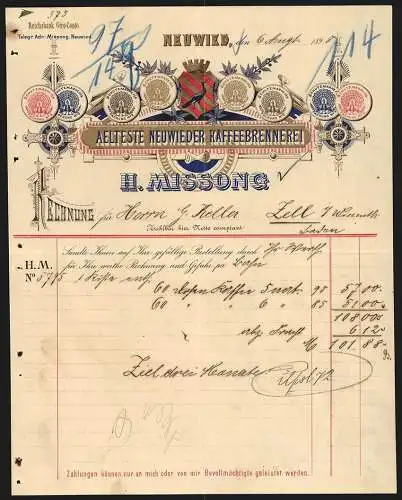 373
Reichsbank Giro-Conto.
Telegr. Adr. Missong, Neuwied.
97
114
NEUWIED, den 6 Augt. 1890
AELTESTE NEUWIEDER KAFFEEBRENNEREI
H. MISSONG
RECHNUNG für Herrn G. Keller Zell i/ Wiesenth.
Zahlbar hier Netto comptant Baden
Sandte Ihnen auf Ihre gefällige Bestellung durch
für Ihre werthe Rechnung und Gefahr pr Bahn
H.M.
No 5715 1 Kiste enth.
60 Dosen Kaffee 5 95 57.00
60 " " 6 " 85 51.00
108.00
abz. Fracht 6.12
M 101.88
Ziel drei Monate
Zahlungen können nur an mich oder von mir Bevollmächtigte geleistet werden.